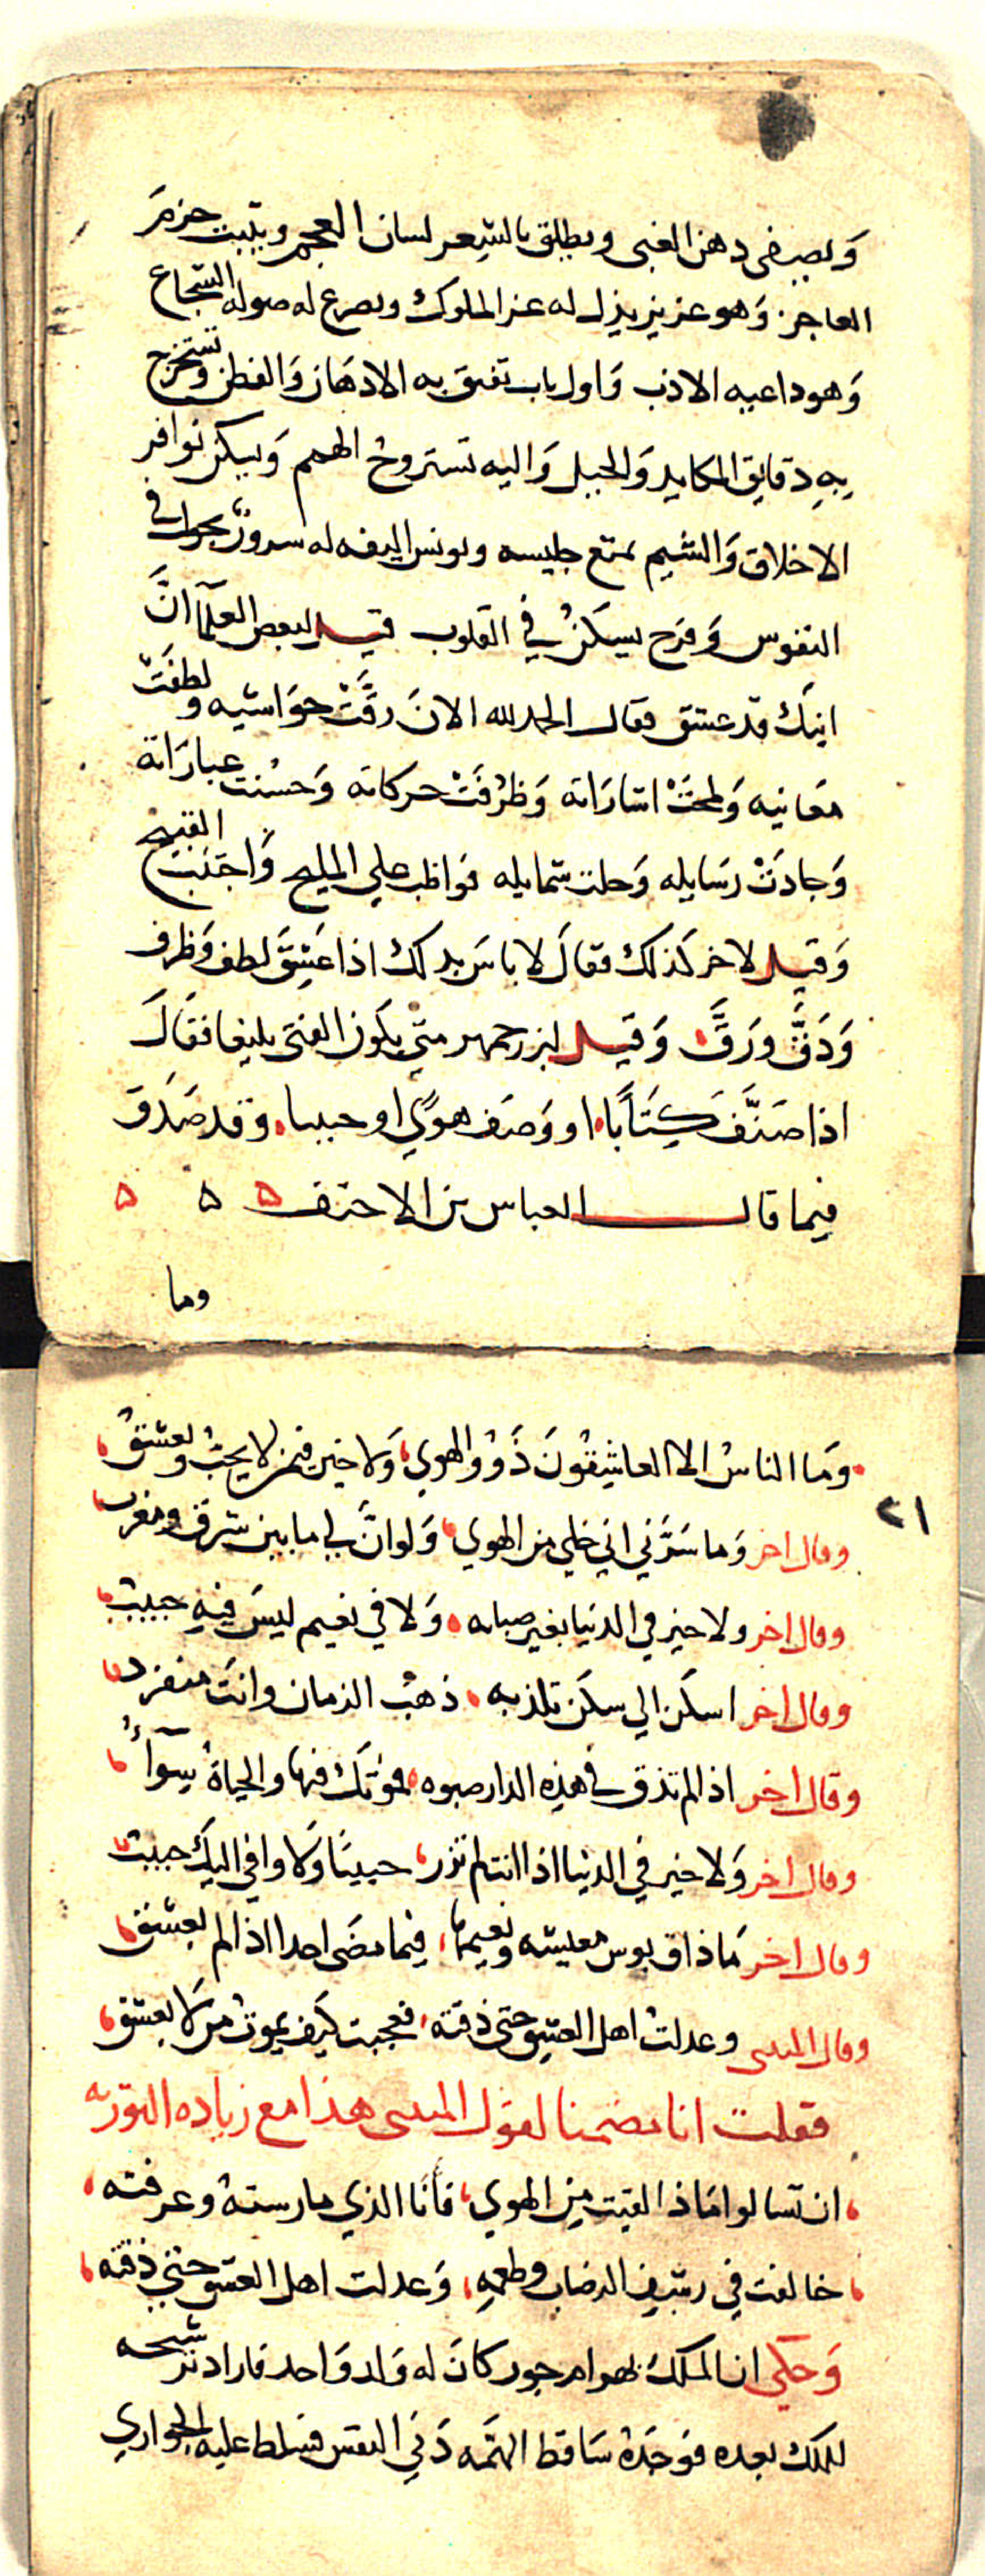 وَيصفي ذهن الغبي ويطلق بالشِعر لسان العجم ويثبت حزم
العاجز وَهو عزيز يذل له عز الملوك ويصرع له صوله الشجاع
وَهو داعيه الادب وَاول باب تفتق به الاذهَان وَالفطن وتستخرج
بِهِ دقايق المكايد وَالحيل وَاليه تستروحُ الهمم وَيسكن نوافر
الاخلاق وَالشيم يمتع جليسه ويونس اليفه له سرورٌ يجول في
النفوس وَفرَح يسكنُ في القلوب قيل لبعض العلمآ انَّ
ابنكَ قد عشق فقال الحمد لله الانَ رقَّتْ حوَاشيه ولطفَتْ
معَانيه وَملحتْ اشارَاته وَظرُفَتْ حركاته وَحسُنت عبارَاته
وَجادَتْ رسَايله وَحلت شمايله فوَاظب علي المليح وَاجتنبَ القبيح
وَقيل لاخر كذلكَ فقالَ لا باسَ بذلك اذا عَشِقَ لطف وَظرف
وَدَقَّ وَرَقَّ وَقيل لبزرجمهر متي يكون الفتى بليغا فقالَ
اذا صَنَّفَ كِتَابًا او وَصَف هوًي او حبيبا وقد صَدَق
فيما قال العباس بن الاحنف ۵ ۵ ۵
وما
وَمَا الناسُ الا العاشِقُونَ ذَوُو الهوي وَلا خير فيمن لا يحبُّ ويعشقُ
٢١
وقال اخر وَما سَرَّني اني خلي من الهوي وَلو انَّ لي ما بين شرق ومغرب
وقال اخر ولا خير في الدنيا بغير صبابه وَلا في نعيم ليسَ فيهِ حبيبُ
وقال اخر اسكن الي سكن تلذ به ذهبَ الزمان وانتَ منفرد
وقال اخر اذا لم تذق في هذِه الدار صبوه فموتكَ فيها والحياةُ سِوآءُ
وقال اخر وَلا خير في الدنيا اذا انت لم تزر حبيبًا وَلا وافي اليكَ حبيبُ
وقال اخر مَا ذاق بوس معيشه ونعيمها فيما مضَي احدا اذا لم يعشق
وقال المتنبي وعدلتُ اهل العشِق حتى ذقته فعجبت كيف يموتُ من لا يعشق
فقلت انا مضمنا لقول المتنبي هذا مع زياده التوريه
ان تسالوا مَاذا لقيت مِن الهوي فأنَا الذي مارستهُ وعرفته
خالفت في رشفِ الرضاب وطعمهِ وَعدلت اهل العشق حتي ذقته
وَحكي ان الملك بهرام جور كانَ له وَلد وَاحد فاراد ترشيحه
للملك بعده فوجَدهُ سَاقط الهمَّه دَني النفس فسلط عليه الجواري